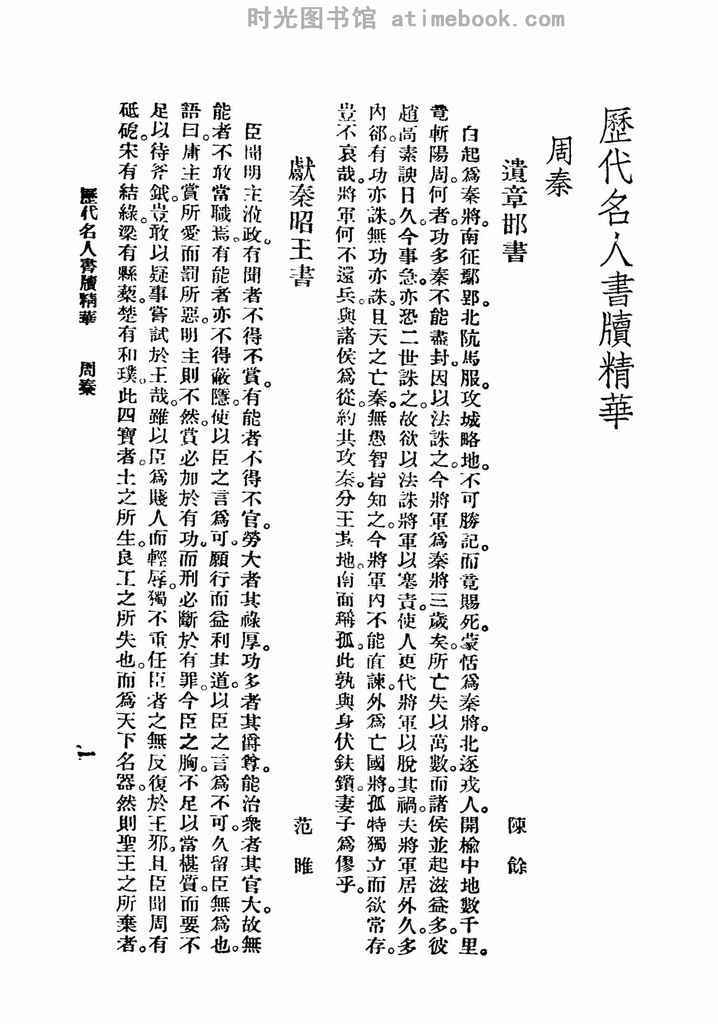 时光图书馆 atimebook.com
歷代名人書牘精華
周秦
遺章邯書 陳餘
白起爲秦將。南征鄢郢。北阬馬服。攻城略地。不可勝記。而竟賜死。蒙恬爲秦將。北逐戎人。開榆中地數千里。
竟斬陽周。何者。功多。秦不能盡封。因以法誅之。今將軍爲秦將三歲矣。所亡失以萬數。而諸侯並起滋益多。彼
趙高素諛日久。今事急。亦恐二世誅之。故欲以法誅將軍以塞責。使人更代將軍以脫其禍。夫將軍居外久。多
內郤。有功亦誅。無功亦誅。且天之亡秦。無愚智皆知之。今將軍內不能直諫。外爲亡國將。孤特獨立而欲常存。
豈不哀哉。將軍何不還兵。與諸侯爲從。約共攻秦。分王其地。南面稱孤。此孰與身伏鈇鑕。妻子爲僇乎。
獻秦昭王書 范睢
臣聞明主涖政。有聞者不得不賞。有能者不得不官。勞大者其祿厚。功多者其爵尊。能治衆者其官大。故無
能者不敢當職焉。有能者亦不得蔽隱。使以臣之言爲可。願行而益利其道。以臣之言爲不可。久留臣無爲也。
語曰。庸主賞所愛而罰所惡。明主則不然。賞必加於有功。而刑必斷於有罪。今臣之胸。不足以當椹質。而要不
足以待斧鉞。豈敢以疑事嘗試於王哉。雖以臣爲賤人而輕辱。獨不重任臣者之無反復於王邪。且臣聞周有
砥硯。宋有結綠。梁有縣藜。楚有和璞。此四寶者。土之所生。良工之所失也。而爲天下名器。然則聖王之所棄者。
歷代名人書牘精華 周秦 一